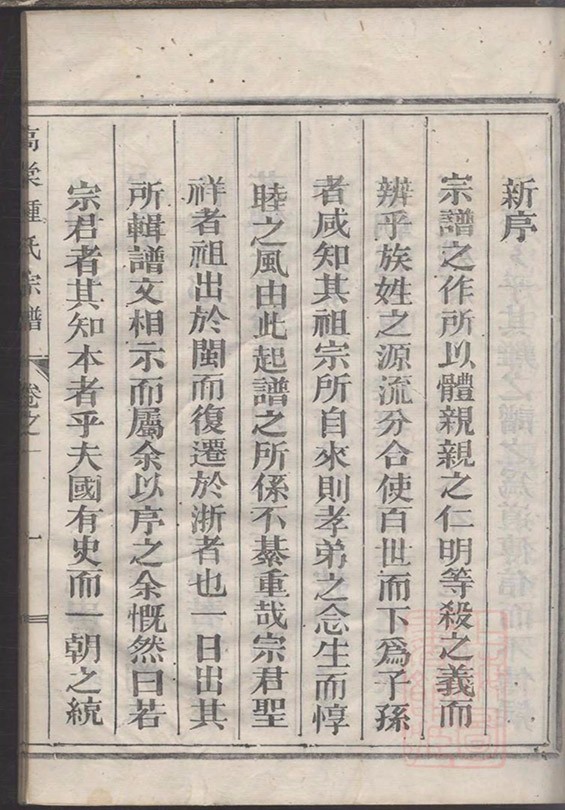 新序
宗譜之作所以體親親之仁明等殺之義而
辨乎族姓之源流分合使百世而下爲子孫
者咸知其祖宗所自來則孝弟之念生而惇
睦之風由此起譜之所係不綦重哉宗君聖
祥者祖出於閩而復遷於浙者也一日出其
所輯譜文相示而屬余以序之余慨然曰若
宗君者其知本者乎夫國有史而一朝之統
氏宗譜 卷之一 一